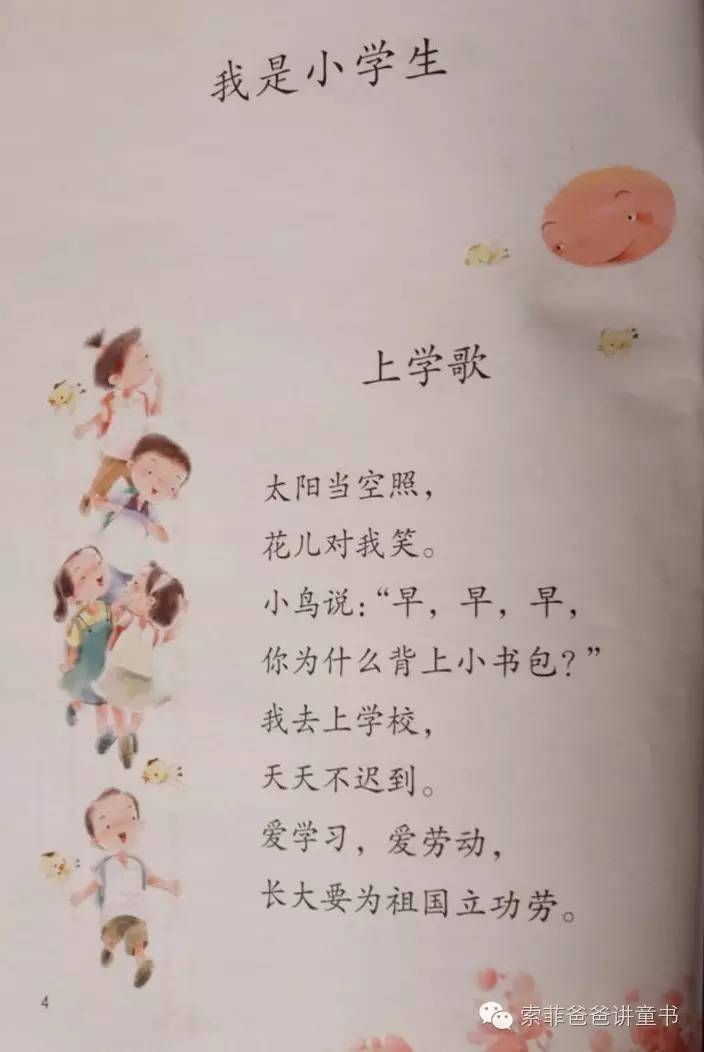 我是小学生
上学歌
太阳当空照，
花儿对我笑。
小鸟说：“早，早，早，
你为什么背上小书包？”
我去上学校，
天天不迟到。
爱学习，爱劳动，
长大要为祖国立功劳。
4
索菲爸爸讲童书